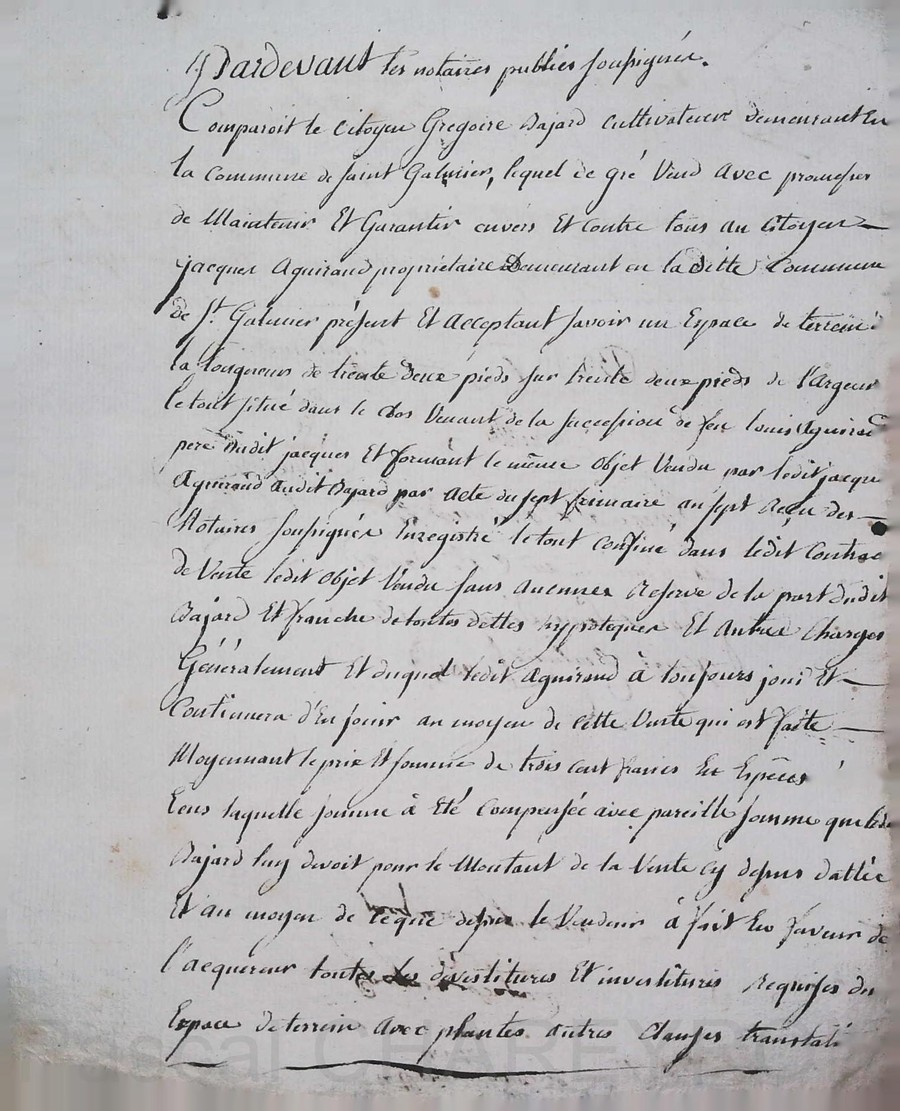 Pardevant les notaires publics soussignés.
Comparoit le Citoyen Gregoire Bajard Cultivateur demeurant en
la Commune de Saint Galmier, lequel de gré Vend avec promesses
de Maintenir Et Garantir envers Et Contre tous au Citoyen
jacques Aguiraud propriétaire Demeurant en la ditte Commune
de St. Galmier présent Et Acceptant savoir un Espace de terrein
la longueur de trente deux pieds sur trente deux pieds de l'Argeur
le tout situé dans le Clos Venant de la succession de feu louis Aguiraud
pere dudit jacques Et formant le même objet Vendu par ledit jacque
Aguiraud audit Bajard par acte du sept frimaire an sept Reçu des
Notaires soussignés Enregistré le tout confiné dans ledit Contrac
de Vente ledit objet Vendu sans aucunes Reserve de la part dudit
Bajard Et franche de toutes dettes hypoteques Et Autres Charges
Généralement Et duquel ledit Aguiraud à toujours joui Et
Continuera d'En jouir au moyen de Cette Vente qui est faite
Moyennant le prix Et somme de trois cent francs En Espêces
laquelle somme à Eté Compensée avec pareille somme que ledi
Bajard luy devoit pour le Montant de la Vente Cy dessus dattée
Et au moyen de ce que dessus le Vendeur à fait En faveur de
l'acquereur toutes les dévestitures Et investitures Requises du
Espace de terrein avec plantes autres Clauses translati